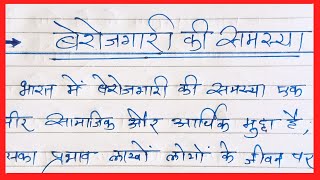 → बेरोजगारी की समस्या
भारत में बेरोजगारी की समस्या एक
सामाजिक और आर्थिक मुद्दा है,
प्रभाव लाखों लोगों के जीवन पर